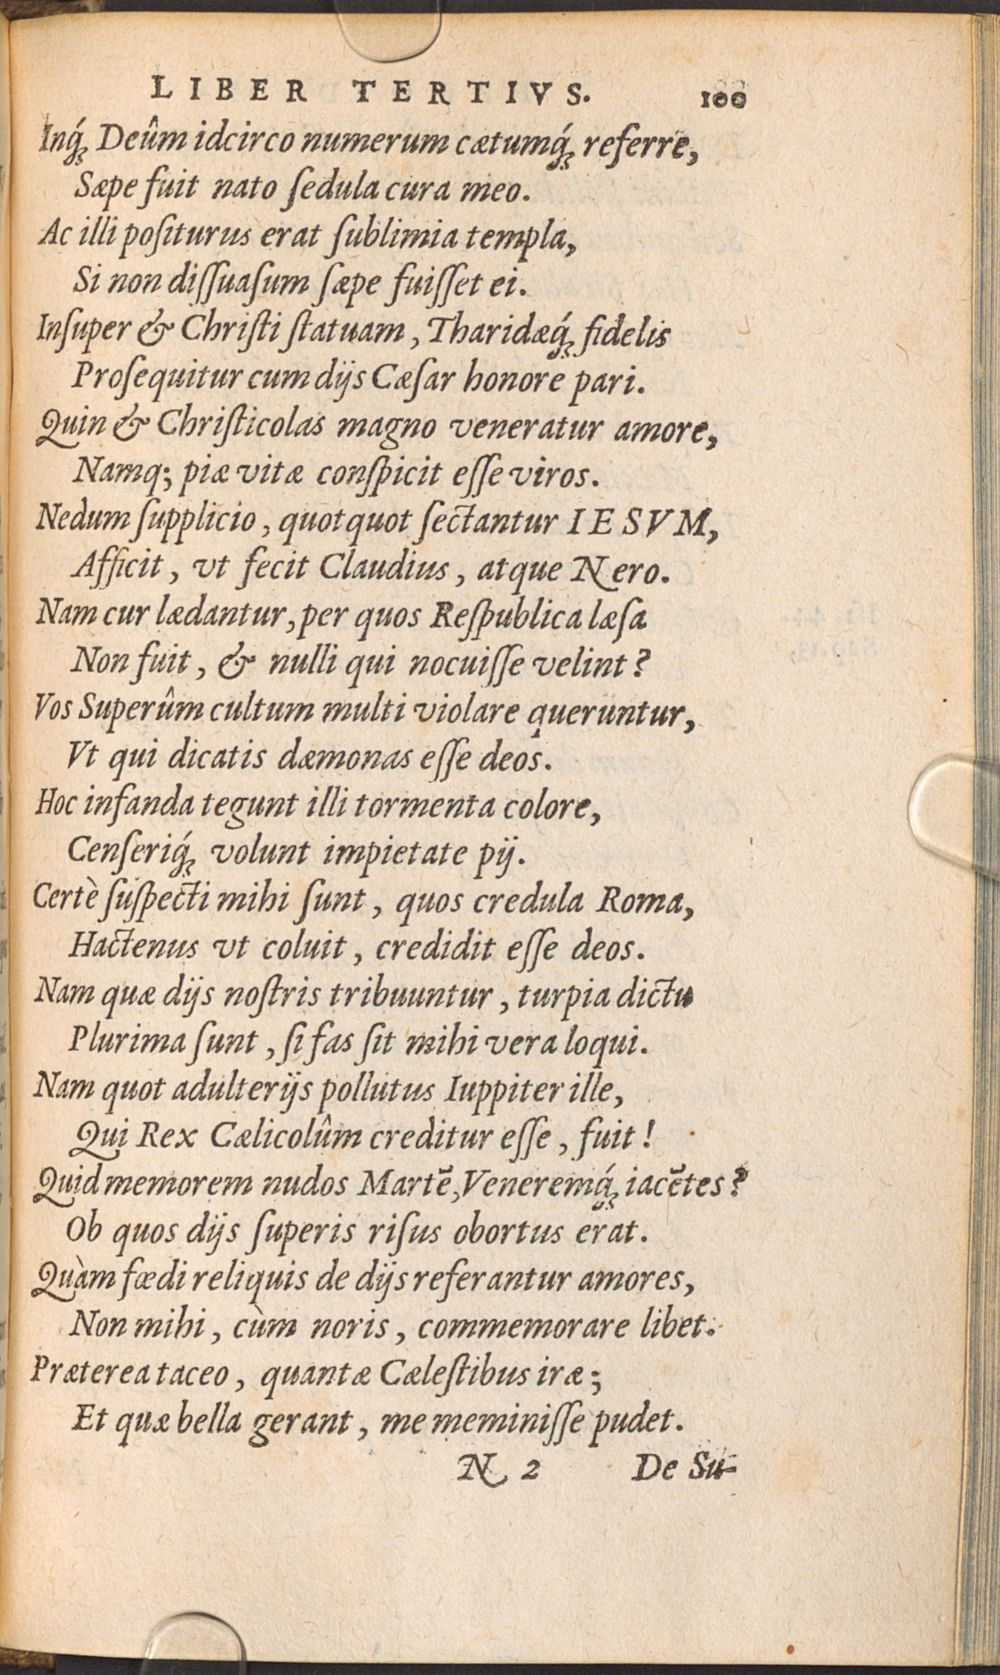 LIBER TERTIVS. 100
Inq́ꝫ Deûm idcirco numerum cætumq́ꝫ referre,
Sæpe fuit nato ſedula cura meo.
Ac illi poſiturus erat ſublimia templa,
Si non diſſuaſum ſæpe fuiſſet ei.
Inſuper & Chriſti ſtatuam, Tharidæq́ꝫ fidelis
Proſequitur cum dijs Cæſar honore pari.
Quin & Chriſticolas magno veneratur amore,
Namq; piæ vitæ conſpicit eſſe viros.
Nedum ſupplicio, quotquot ſectantur IESVM,
Afficit, vt fecit Claudius, atque Nero.
Nam cur lædantur, per quos Reſpublica læſa
Non fuit, & nulli qui nocuiſſe velint?
Vos Superûm cultum multi violare queruntur,
Vt qui dicatis dæmonas eſſe deos.
Hoc infanda tegunt illi tormenta colore,
Cenſeriq́ꝫ volunt impietate pij.
Certè ſuſpecti mihi ſunt, quos credula Roma,
Hactenus vt coluit, credidit eſſe deos.
Nam quæ dijs noſtris tribuuntur, turpia dictu
Plurima ſunt, ſi fas ſit mihi vera loqui.
Nam quot adulterijs pollutus Iuppiter ille,
Qui Rex Cælicolûm creditur eſſe, fuit!
Quid memorem nudos Martē, Veneremq́ꝫ iacētes?
Ob quos dijs ſuperis riſus obortus erat.
Quàm fœdi reliquis de dijs referantur amores,
Non mihi, cùm noris, commemorare libet.
Præterea taceo, quantæ Cæleſtibus iræ;
Et quæ bella gerant, me meminiſſe pudet.
N 2 De Su-